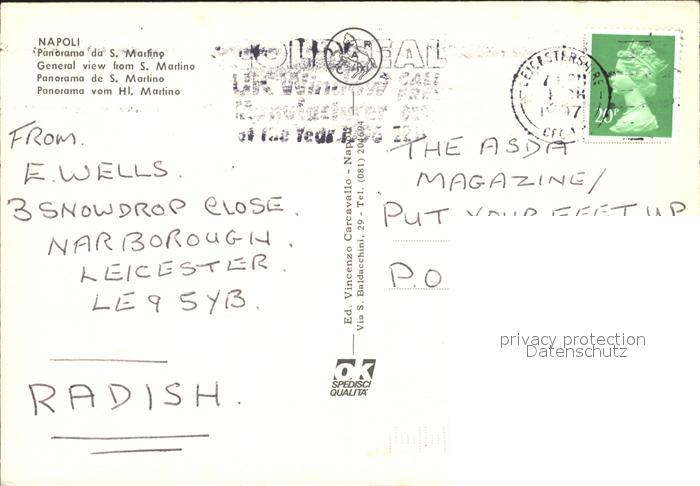 NAPOLI
Panorama da S. Martino
General view from S. Martino
Panorama de S. Martino
Panorama vom Hl. Martino
SEAL
UK Window
of the Year
LEICESTERSHIRE
20P
FROM.
E. WELLS.
3 SNOWDROP CLOSE.
NARBOROUGH.
LEICESTER.
LE9 5YB.
RADISH.
Ed. Vincenzo Carcavallo - Napoli
Via S. Baldacchini, 29 - Tel. (081) 204694
OK
SPEDISCI
QUALITA'
THE ASDA
MAGAZINE/
PUT YOUR FEET UP
P.O
privacy protection
Datenschutz